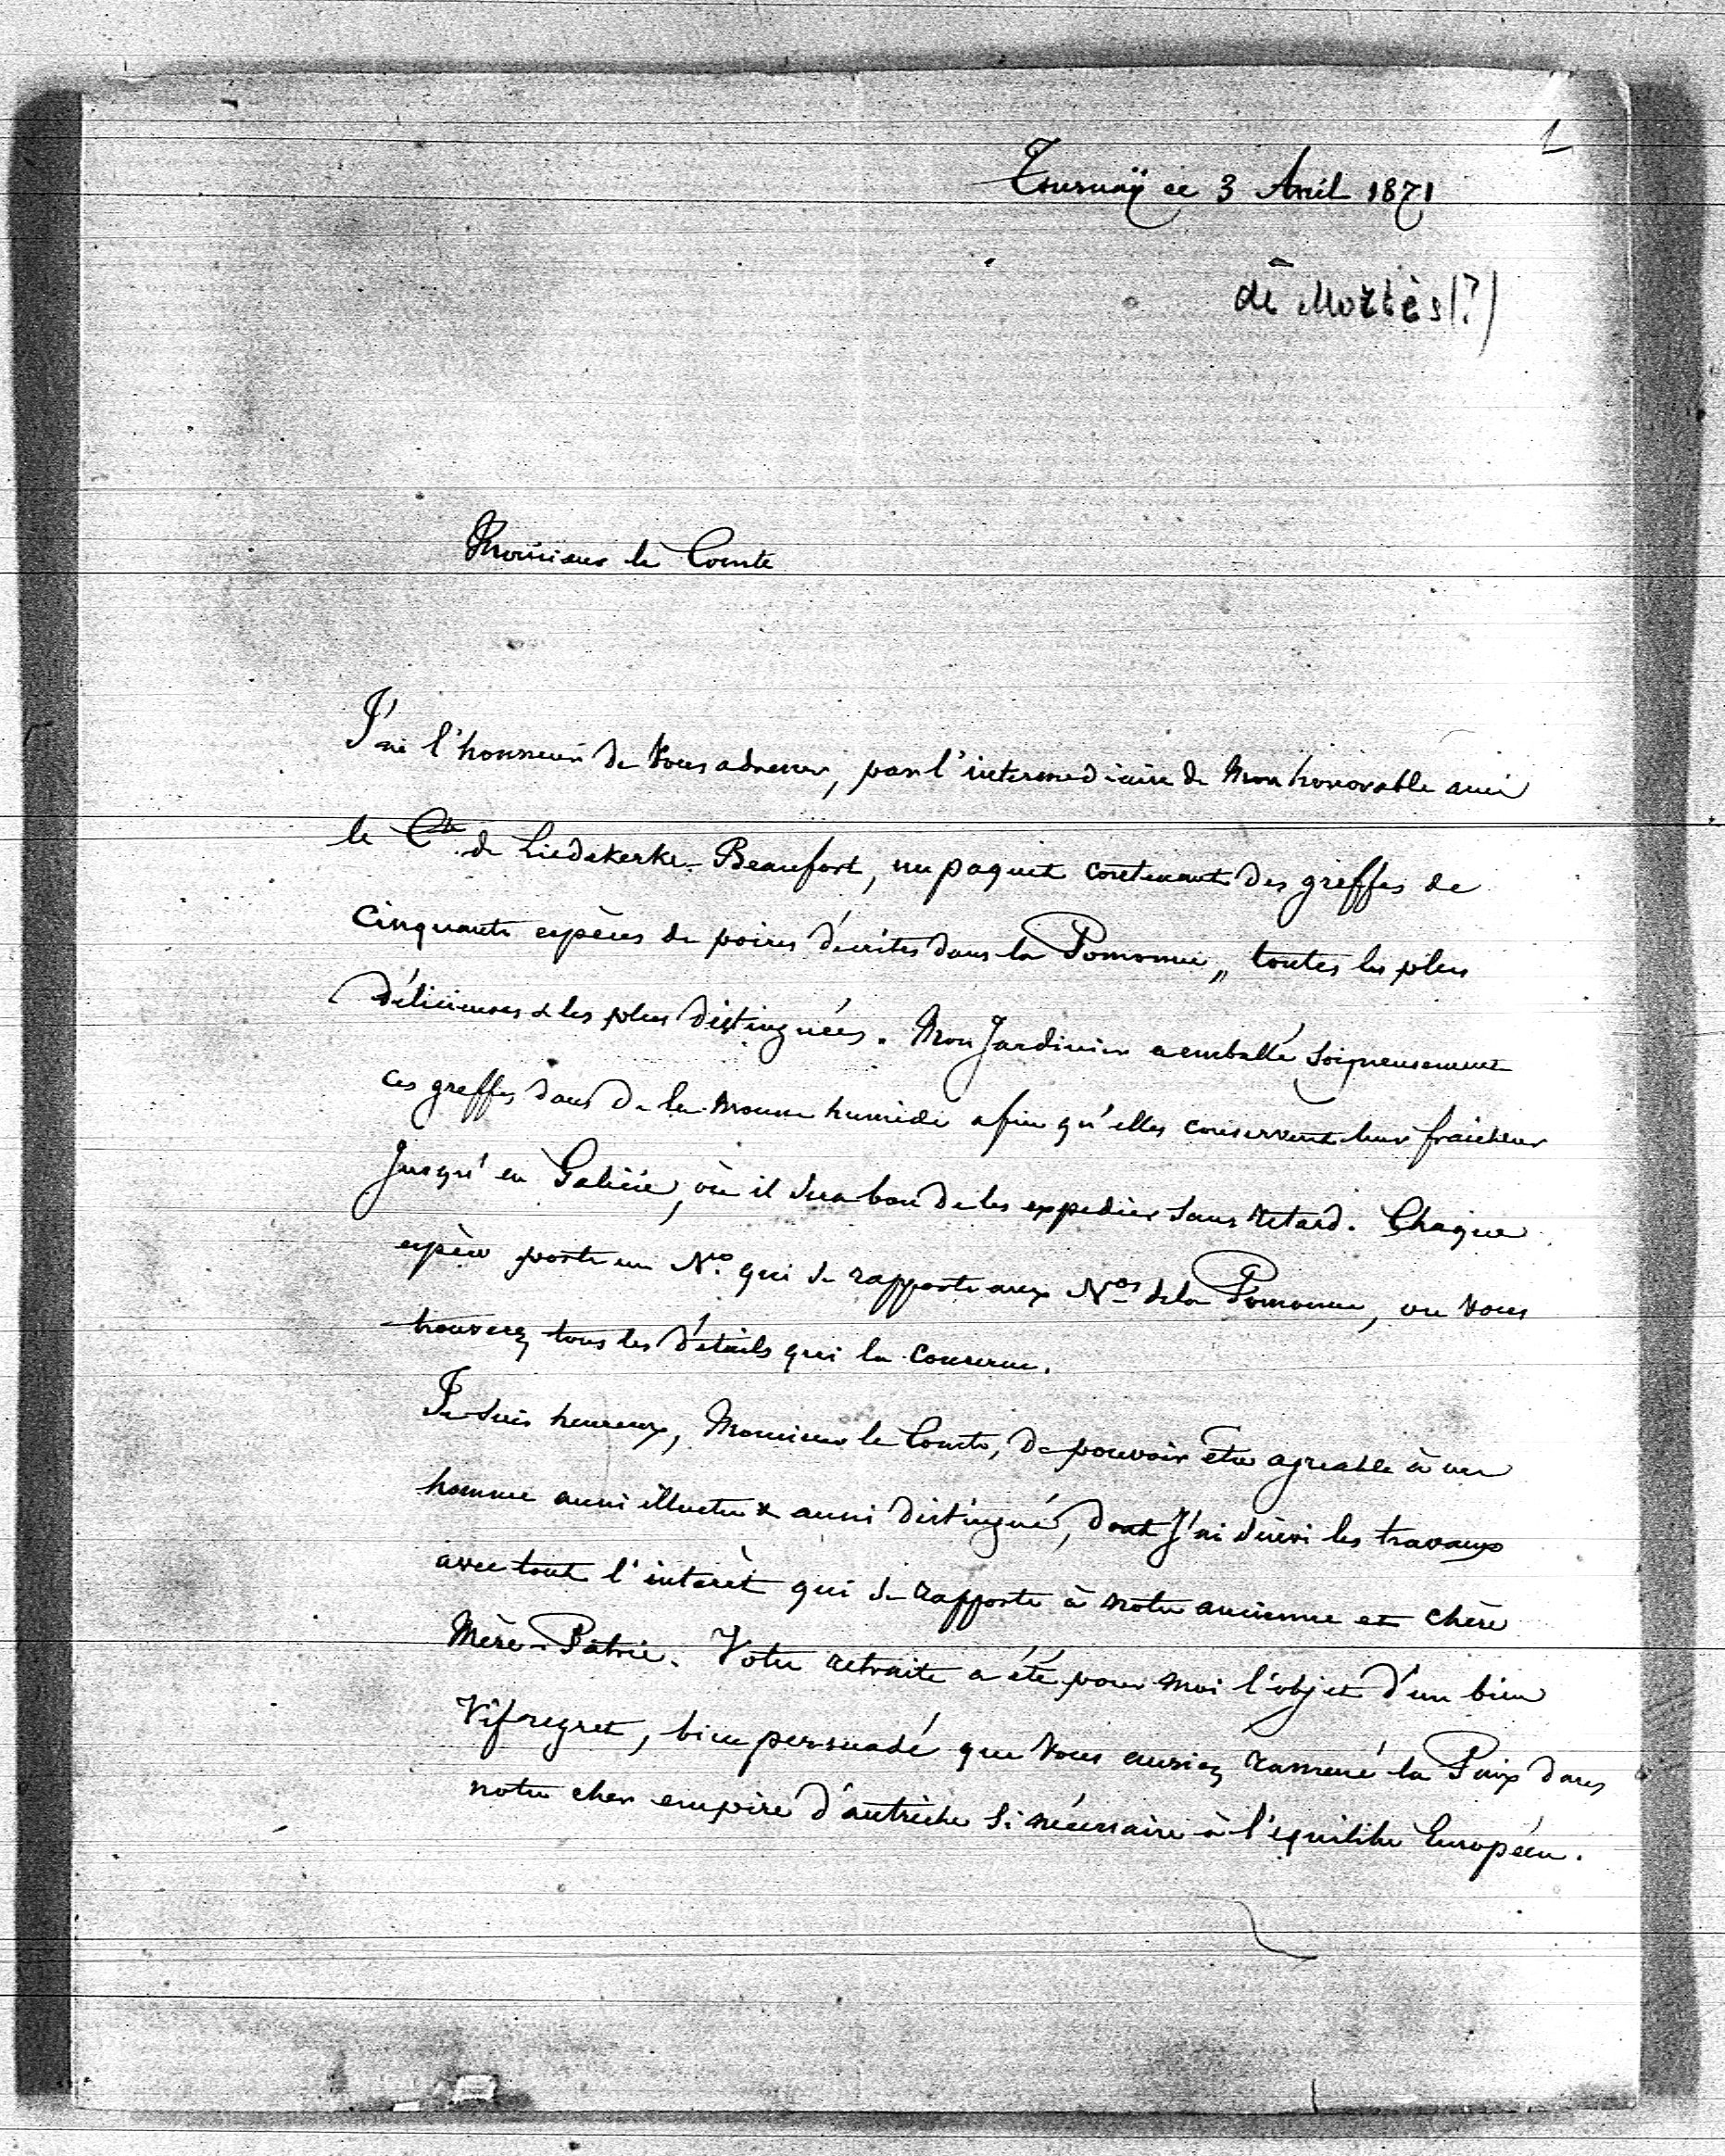 1
Tournaÿ ce 3 Avril 1871
de Mortès (?)
Monsieur le Comte
J'ai l'honneur de Vous adresser, par l'intermediaire de Mon honorable ami
le Cte. de Liedekerke-Beaufort, un paquet contenant des greffes de
Cinquante espèces de poires décrites dans la Pomonne „ toutes les plus
délicieuses & les plus distinguées. Mon Jardinier a emballé soigneusement
ces greffes dans de la mousse humide afin qu'elles conservent leur fraicheur
Jusqu'en Galicie, où il sera bon de les expedier sans retard. Chaque
espèce porte un No. qui se rapporte aux Nos de la Pomonne, ou vous
trouverez tous les détails qui la concerne.
Je suis heureux, Monsieur le Comte, de pouvoir être agreable à un
homme aussi illustre & aussi distingué, dont J'ai suivi les travaux
avec tout l'intérèt qui se rapporte à notre ancienne et chère
Mère-Patrie. Votre retraite a été pour moi l'objet d'un bien
Vif regret, bien persuadé que Vous auriez ramené la Paix dans
notre cher empire d'autriche si nécessaire à l'equilibre Européen.